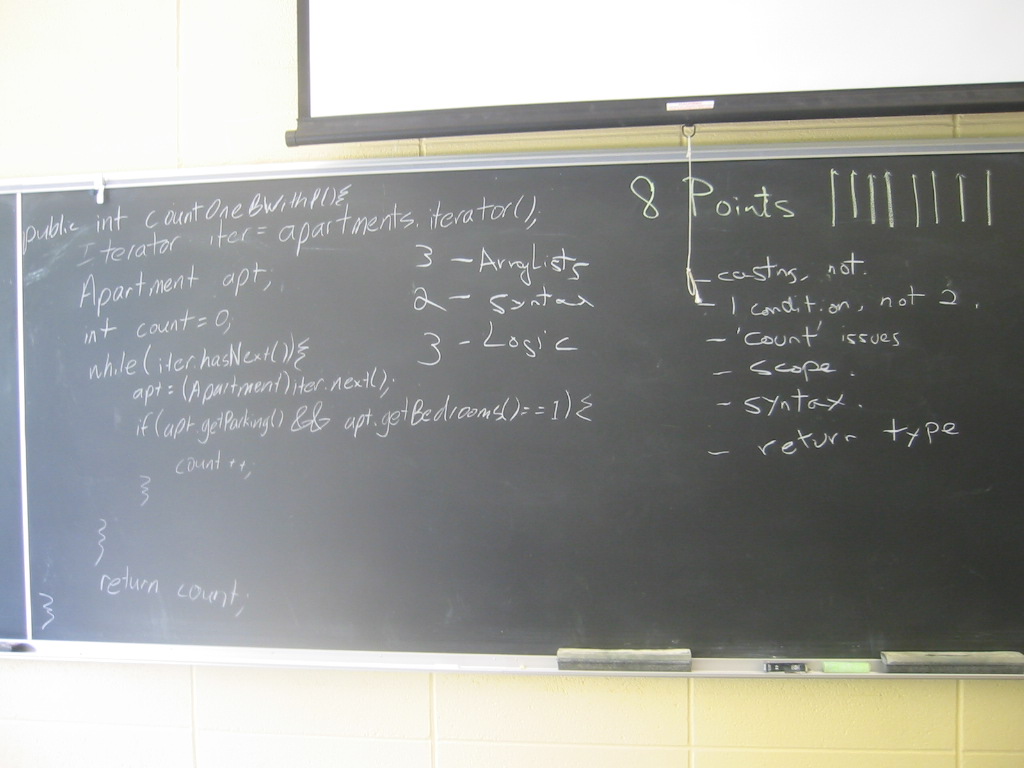 public int countOneBwithP(){
Iterator iter = apartments.iterator();
Apartment apt;
int count = 0;
while(iter.hasNext()){
apt = (Apartment)iter.next();
if(apt.getParking() && apt.getBedrooms() == 1){
count++;
}
}
return count;
}
3 - ArrayLists
2 - syntax
3 - Logic
8 Points
- casting, not.
- 1 condition, not 2.
- 'count' issues
- scope.
- syntax.
- return type